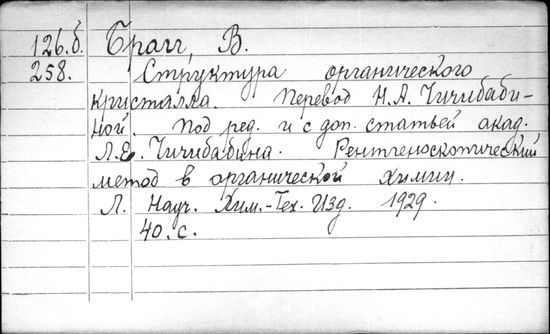 126.б. Брагг, В.
258. Структура органического
кристалла. Перевод Н.А. Чичибаби-
ной. Под ред. и с доп. статьей акад.
Л.Е. Чичибабина. Рентгеноскопический
метод в органической химии.
Л. Науч. Хим.-Тех. Изд. 1929.
40. с.